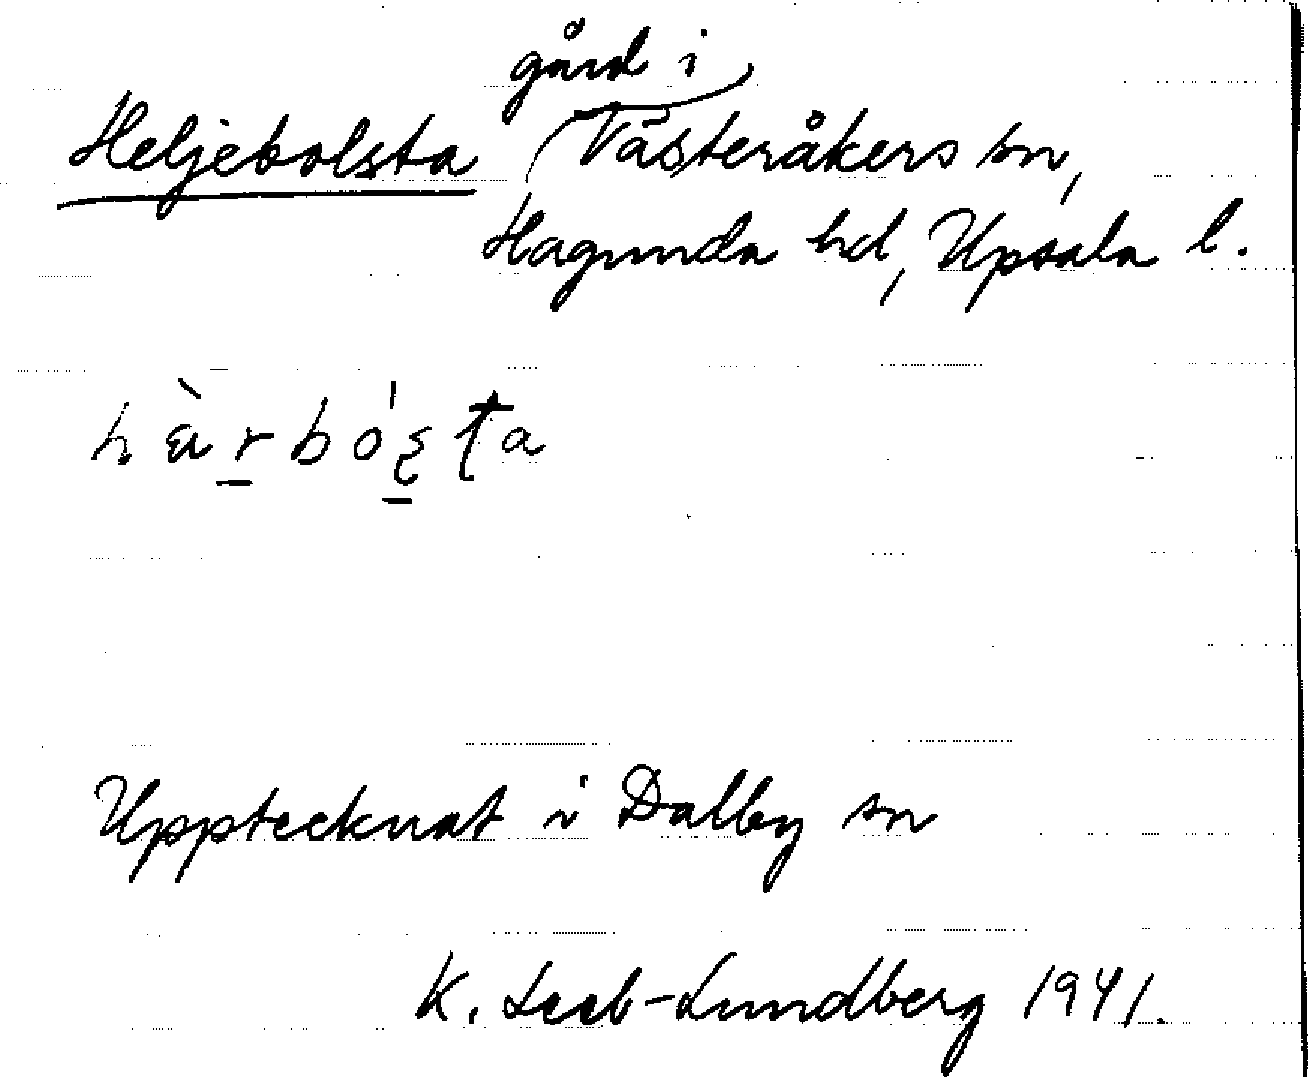 gård i
Heljebolsta Västeråkers sn,
Hagunda hd, Upsala l.
Upptecknat i Dalby sn
K. Leeb-Lundberg 1941.